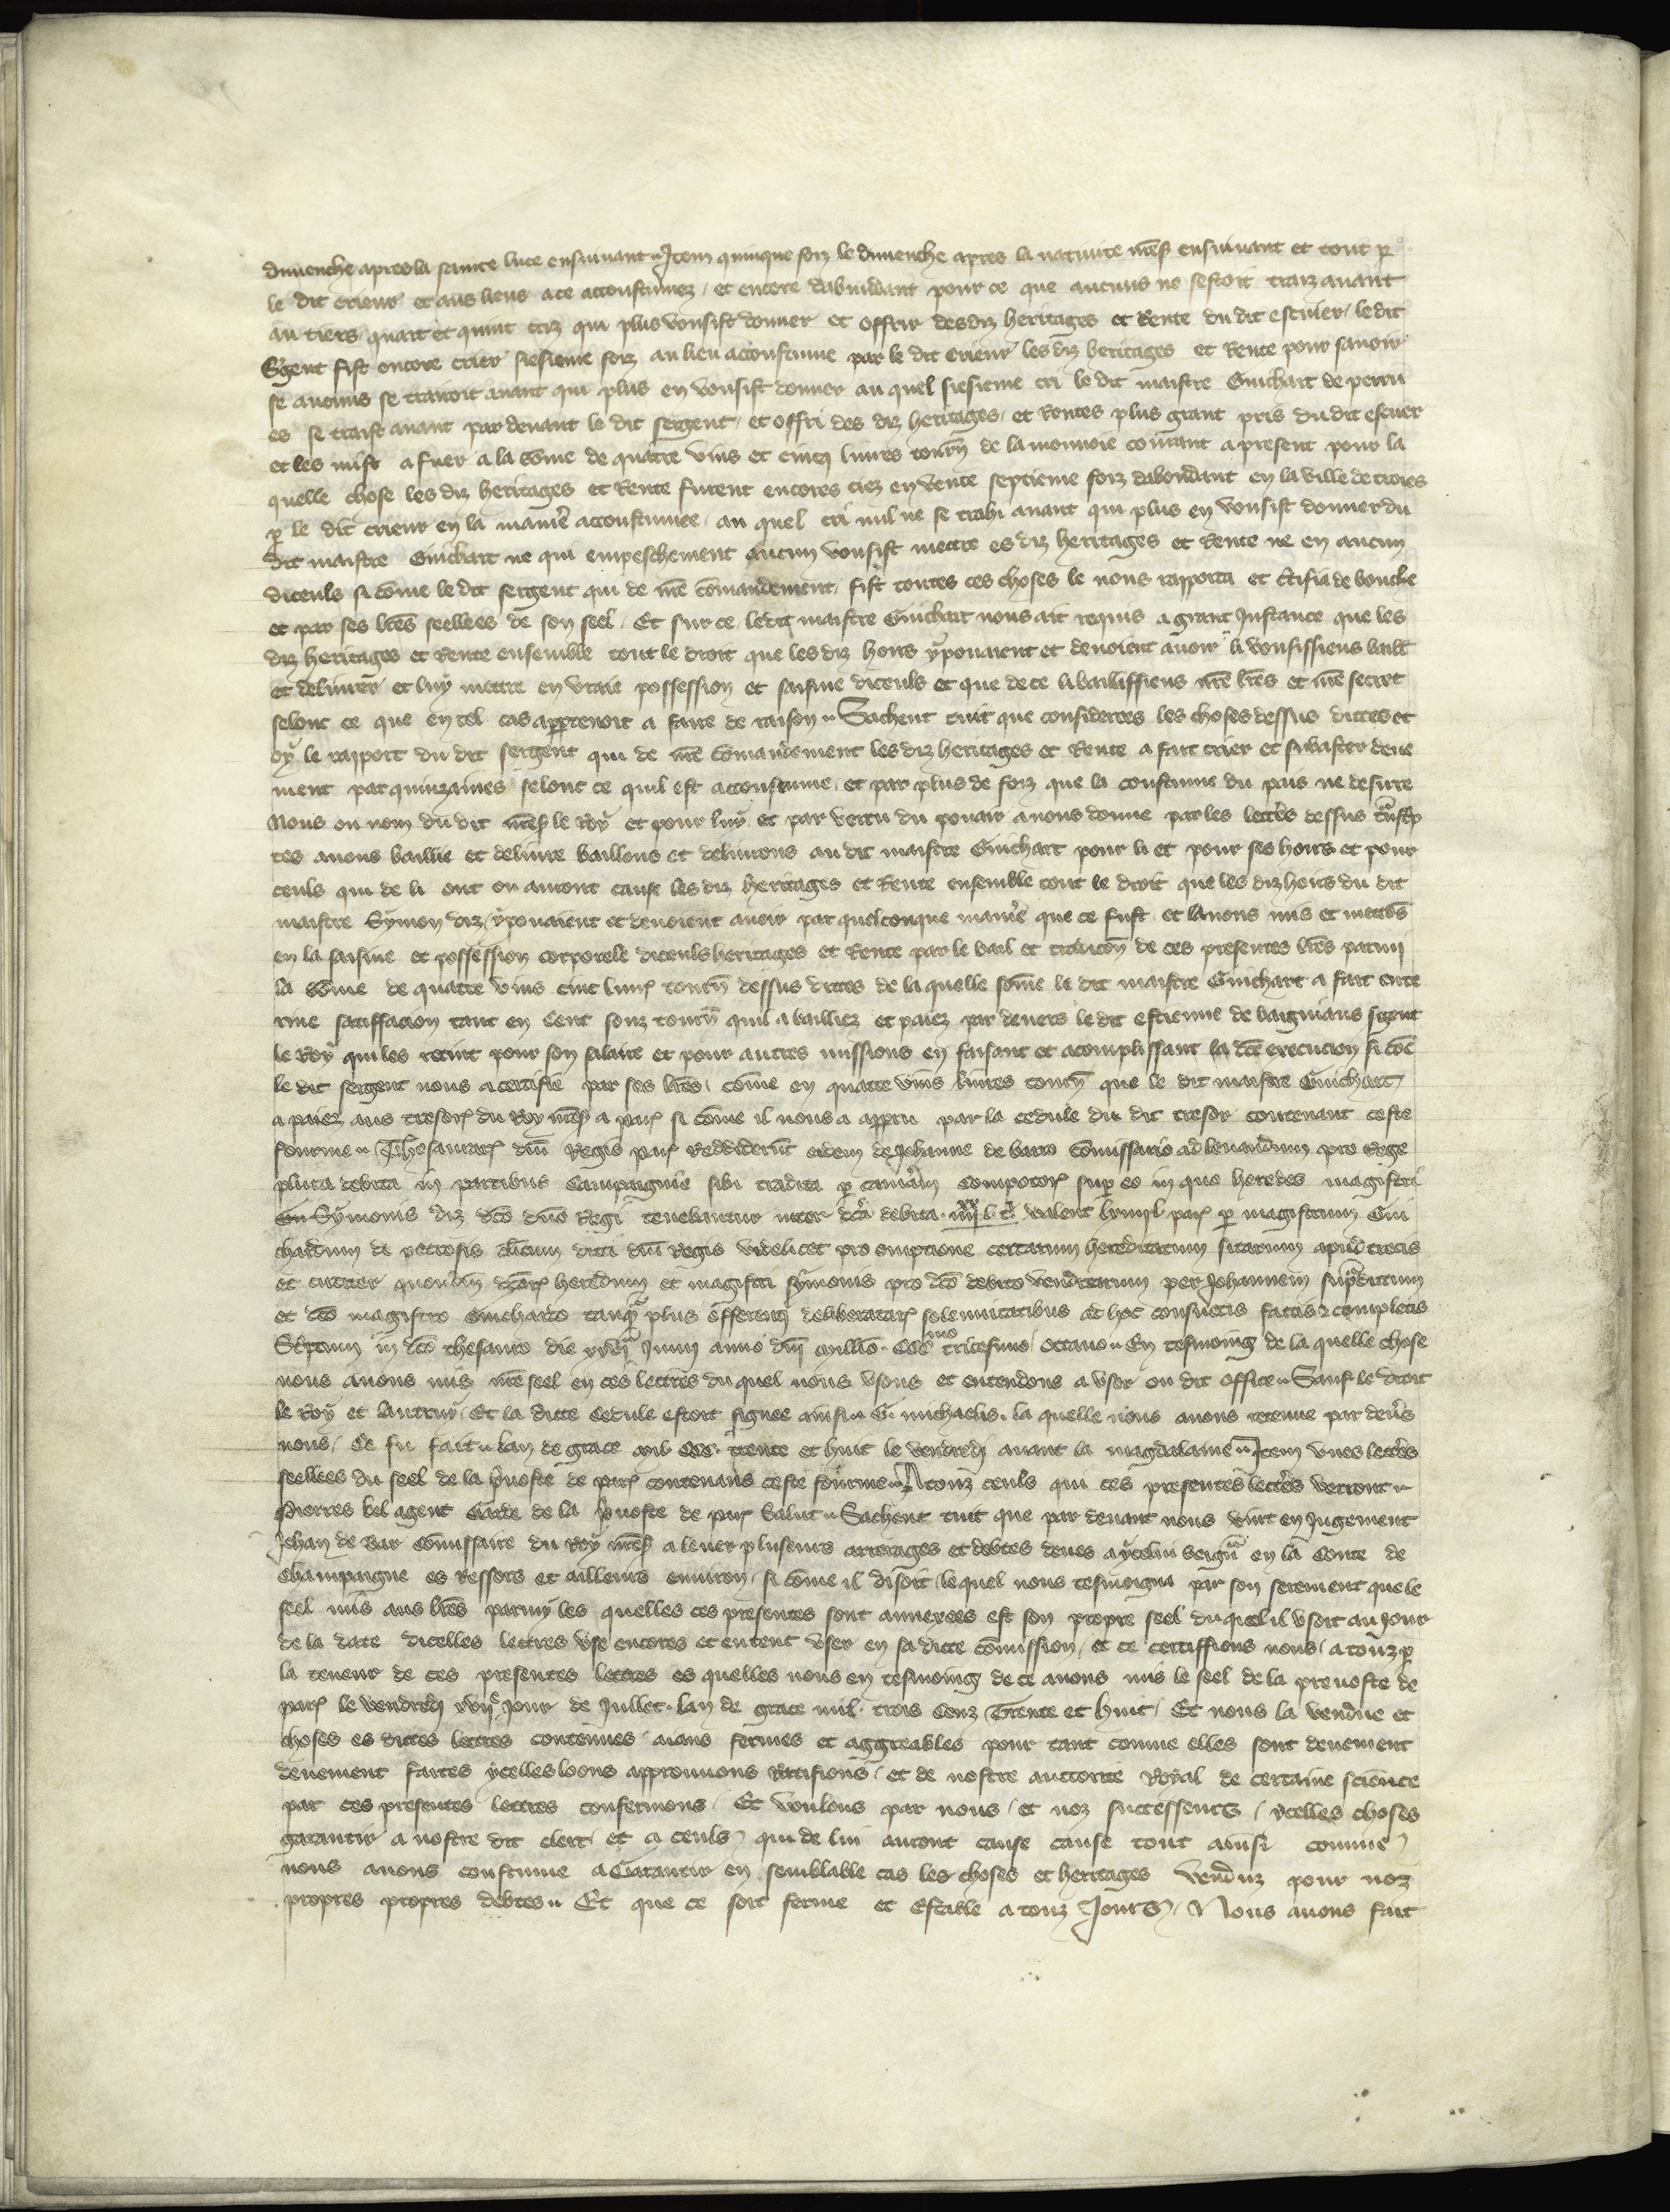 dimenche apres la saincte luce ensuiuant. Item quinque foiz le dimenche apres la natiuite nr̃es ensuiuant et tout p̱
le dit crieur et aus lieus a ce acoustumez / et encore dabundant pour ce que aucuns ne sestoit traiz auant
au tiers quart et quint criz qui plus vousist donner et offrir desdiz heritages et Rente du dit escuier / ledit
S'gent fist encore crier siesieme foiz au lieu acoustume par le dit crieur les diz heritages et Rente pour sauoir
se aucuns se trairoit auant qui plus en vousist donner au quel siesieme cri le dit maistre Guichart de perru
es se traist auant par deuant le dit sergent / et offri des diz heritages / et Rentes plus grant pris du dit escuier
et les mist a fuer a la sõme de quatre vins et cincq liures tourñ de la monnoie courant a present pour la
quelle chose les diz heritages et Rente furent encores criez en vente septieme foiz dabondant en la ville de troies
p̱ le dit crieur en la manie'e acoustumee / au quel cri nul ne se trahi auant qui plus en vousist donner du
dit maistre Guichart ne qui empeschement aucun vousist mettre es diz heritages et Rente ne en aucun
diceuls si cõme le dit sergent qui de nr̃e cõmandement / fist toutes ces choses le nous rapporta et c'tifia de bouche
et par ses lr̃es seellees de son seel / Et sur ce ledit maistre Guichart nous ait requis a grant Instance que les
diz heritages et Rente ensemble tout le droit que les diz hoirs y pouaient et deuoient auoir li vousissiens baill'
et deliurer et luy mettre en vraie possession et saisine diceuls et que de ce li baillissiens nr̃e lr̃es et nr̃e secret
selont ce que en tel cas appartenoit a faire de raison. Sachent tuit que considerees les choses dessus dictes et
oy le rapport du dit sergent qui de nr̃e cõmandement les diz heritages et Rente a fait crier et subaster deue
ment par quinzaines selont ce quil est acoustume / et par plus de foiz que la coustume du pais ne desire
Nous ou nom du dit nr̃es le Roy et pour luy et par vertu du pouair a nous donne par les lettres dessus t̃nscp̱
tes auons baillie et deliure baillons et deliurons au dit maistre Guichart pour li et pour ses hoirs et pour
ceuls qui de li ont ou auront cause les diz heritages et Rente ensemble tout le droit que les diz hoirs du dit
maistre Symon diz / y pouaient et deuoient auoir par quelconque manie'e que ce fust et lauons mis et mettõs
en la saisine et possession corporele diceuls heritages et Rente par le bail et tradicõn de ces presentes lr̃es parmi
la sõme de quatre vins cinc liur' tourñ dessus dictes de la quelle sõme le dit maistre Guichart a fait ente
rine satisfacion tant en Cent soulz tourñ quil a bailliez et paiez par deuers le dit estienne de baigniaus s'gent
le Roy qui les retint pour son salaire et pour autres missions en faisant et acomplissant la dc̃e execucion si cõe
le dit sergent nous a certifie par ses lr̃es / cõme en quatre vins liures tourñ que le dit maistre Guichart
a paiez aus tresor' du Roy nr̃es a par' si cõme il nous a apparu par la cedule du dit tresor contenant ceste
fourme. Thesaurar' dñi Regis par' Reddiderũt eidem de Johanne de barro Cõmissario ad leuandum pro Rege
plura debita in partibus Campaignie sibi tradita p̱ cameram Compotor' sup̱ eo in quo heredes magistri
Gu Symonis diz dc̃o dñoo Regi tenebantur inter dc̃a debita. iiij xx l t' valent lxiiij l par' p̱ magistrum Gui
chardum de petrosis clicum dicti dñi Regis videlicet pro empcione certarum hereditatum sitarum apud trecis
et circiter quondam dc̃or' heredum et magistri Symonis pro dc̃o debito venditarum per Johannem sup̱dictum
et dc̃o magistro Guichardo tanq̃ plus offerenti deliberatar' solennitatibus ad hoc consuetis factis et completis
Script̃um in dc̃o thesauro die xxvjª Junij anno dñi millõ. CCC mo tricesimo / octauo. En tesmoing de la quelle chose
nous auons mis nr̃e seel en ces lettres du quel nous vsons et entendons a vser ou dit office. Sauf le droit
le Roy et lautruy / Et la dicte Cedule estoit signee ainsi. G. michaelis. la quelle nous auons retenue par deu's
nous / Ce fu fait. lan de grace mil CCC. trente et huit le vendredj auant la magdalaine. Item vnes lettres
seellees du seel de la p'uoste de par' contenans ceste fourme. A touz ceuls qui ces presentes lettres verront
Pierres bel agent Garde de la p'uoste de par' Salut. Sachent tuit que par deuant nous vint en Jugement
Jehan de Bar Cõmissaire du Roy nr̃es a leuer pluseurs arrerages et debtes deues a ycelui seign' en la Conte de
Champaigne es Ressors et ailleurs enuiron / si cõme il disoit / lequel nous tesmoigna par son serement que le
seel mis aus lr̃es parmy les quelles ces presentes sont annexees est son propre seel du quel il vsoit au Jour
de la date dicelles lettres vse encores et entent vser en sa dicte cõmission / et ce certiffions nous / a touz p̱
la teneur de ces presentes lettres es quelles nous en tesmoing de ce auons mis le seel de la preuoste de
par' le vendredj xvije Jour de Juillet. lan de grace mil. trois Cenz Trente et huit / Et nous la vendue et
choses es dictes lettres contenues / aians fermes et aggreables pour tant comme elles sont deuement
deuement faites ycelles loons approuuons Ratifions / et de nostre auctorite Royal de certaine science
par ces presentes lettres confermons / Et voulons par nous / et noz successeurs / ycelles choses
garantir a nostre dit clerc et a ceuls / qui de lui auront cause cause tout ainsi comme
nous auons coustume a Garantir en semblable cas les choses et heritages venduz pour noz
propres propres debtes. Et que ce soit ferme et Estable a touz Jours / Nous auons fait